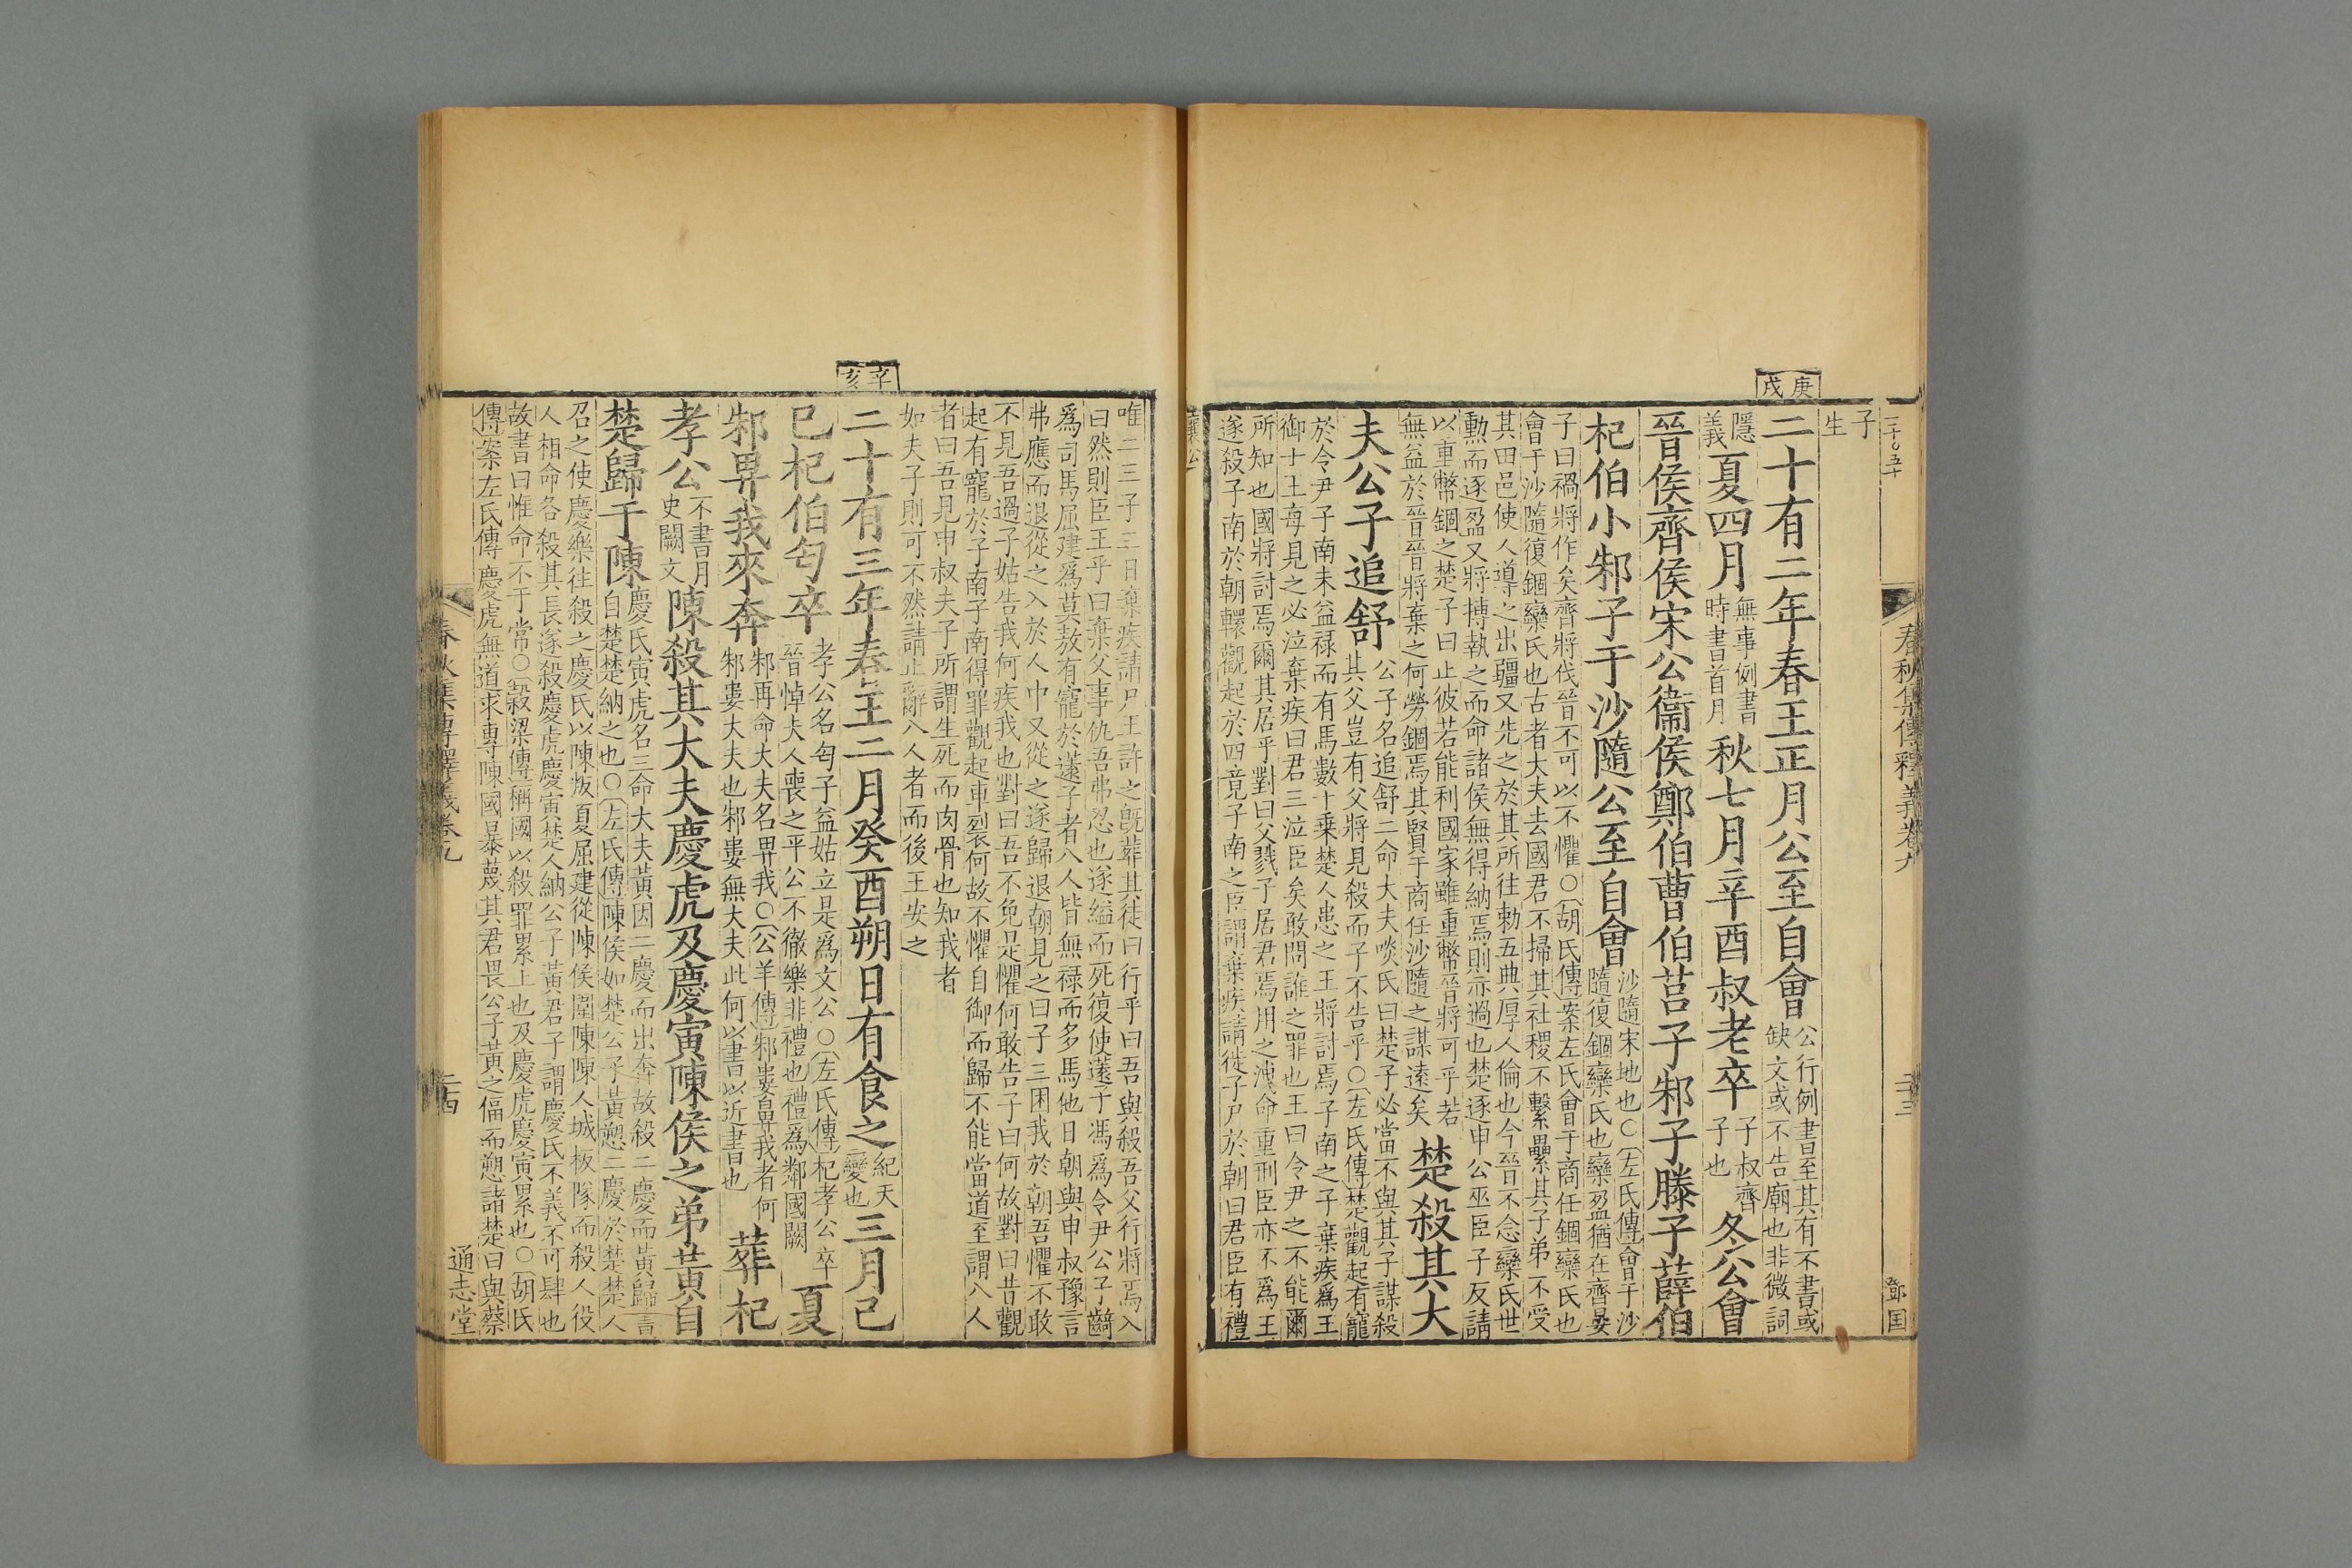 庚戌
子
生
二十有二年春王正月公至自會
公行例書至其有不書或
缺文或不告廟也非微詞
隱
義
夏四月
無事例書
時書首月
秋七月辛酉叔老卒
子叔齊
子也
冬公會
晉侯齊侯宋公衞侯鄭伯曹伯莒子邾子滕子薛伯
杞伯小邾子于沙隨公至自會
沙隨宋地也○左氏傳會于沙
隨復錮欒氏也欒盈猶在齊晏
子曰禍將作矣齊將伐晉不可以不懼○胡氏傳案左氏會于商任錮欒氏也
會于沙隨復錮欒氏也古者大夫去國君不掃其社稷不繫纍其子弟不受
其田邑使人導之出疆又先之於其所往勅五典厚人倫也今晉不念欒氏世
勲而逐盈又將搏執之而命諸侯無得納焉則亦過也楚逐申公巫臣子反請
以重幣錮之楚子曰止彼若能利國家雖重幣晉將可乎若
無益於晉晉將棄之何勞錮焉其賢于商任沙隨之謀遠矣
楚殺其大
夫公子追舒
公子名追舒二命大夫啖氏曰楚子必當不與其子謀殺
其父豈有父將見殺而子不告乎○左氏傳楚觀起有寵
於令尹子南未益禄而有馬數十乗楚人患之王將討焉子南之子棄疾爲王
御士王每見之必泣棄疾曰君三泣臣矣敢問誰之罪也王曰令尹之不能爾
所知也國將討焉爾其居乎對曰父戮子居君焉用之洩命重刑臣亦不爲王
遂殺子南於朝轘觀起於四竟子南之臣謂棄疾請徙子尸於朝曰君臣有禮
春秋集傳釋義卷九
二十三
鄧国
辛亥
唯二三子三日棄疾請尸王許之旣葬其徒曰行乎曰吾與殺吾父行將焉入
曰然則臣王乎曰棄父事仇吾弗忍也遂縊而死復使薳子馮爲令尹公子齮
爲司馬屈建爲莫敖有寵於薳子者八人皆無禄而多馬他日朝與申叔豫言
弗應而退從之入於人中又從之遂歸退朝見之曰子三困我於朝吾懼不敢
不見吾過子姑告我何疾我也對曰吾不免是懼何敢告子曰何故對曰昔觀
起有寵於子南子南得罪觀起車裂何故不懼自御而歸不能當道至謂八人
者曰吾見申叔夫子所謂生死而肉骨也知我者
如夫子則可不然請止辭八人者而後王安之
二十有三年春王二月癸酉朔日有食之
紀天
變也
三月己
巳杞伯匄卒
孝公名匄子益姑立是爲文公○左氏傳杞孝公卒
晉悼夫人喪之平公不徹樂非禮也禮爲鄰國闕
夏
邾畀我來奔
邾再命大夫名畀我○公羊傳邾婁鼻我者何
邾婁大夫也邾婁無大夫此何以書以近書也
葬杞
孝公
不書月
史闕文
陳殺其大夫慶虎及慶寅陳侯之弟黃自
楚歸于陳
慶氏寅虎名三命大夫黃因二慶而出奔故殺二慶而黃歸書
自楚楚納之也○左氏傳陳侯如楚公子黃愬二慶於楚楚人
召之使慶樂往殺之慶氏以陳叛夏屈建從陳侯圍陳陳人城板隊而殺人役
人相命各殺其長遂殺慶虎慶寅楚人納公子黃君子謂慶氏不義不可肆也
故書曰惟命不于常○穀梁傳稱國以殺罪累上也及慶虎慶寅累也○胡氏
傳案左氏傳慶虎無道求專陳國暴蔑其君畏公子黃之偪而愬諸楚曰與蔡
春秋集傳釋義卷九
二十四
通志堂